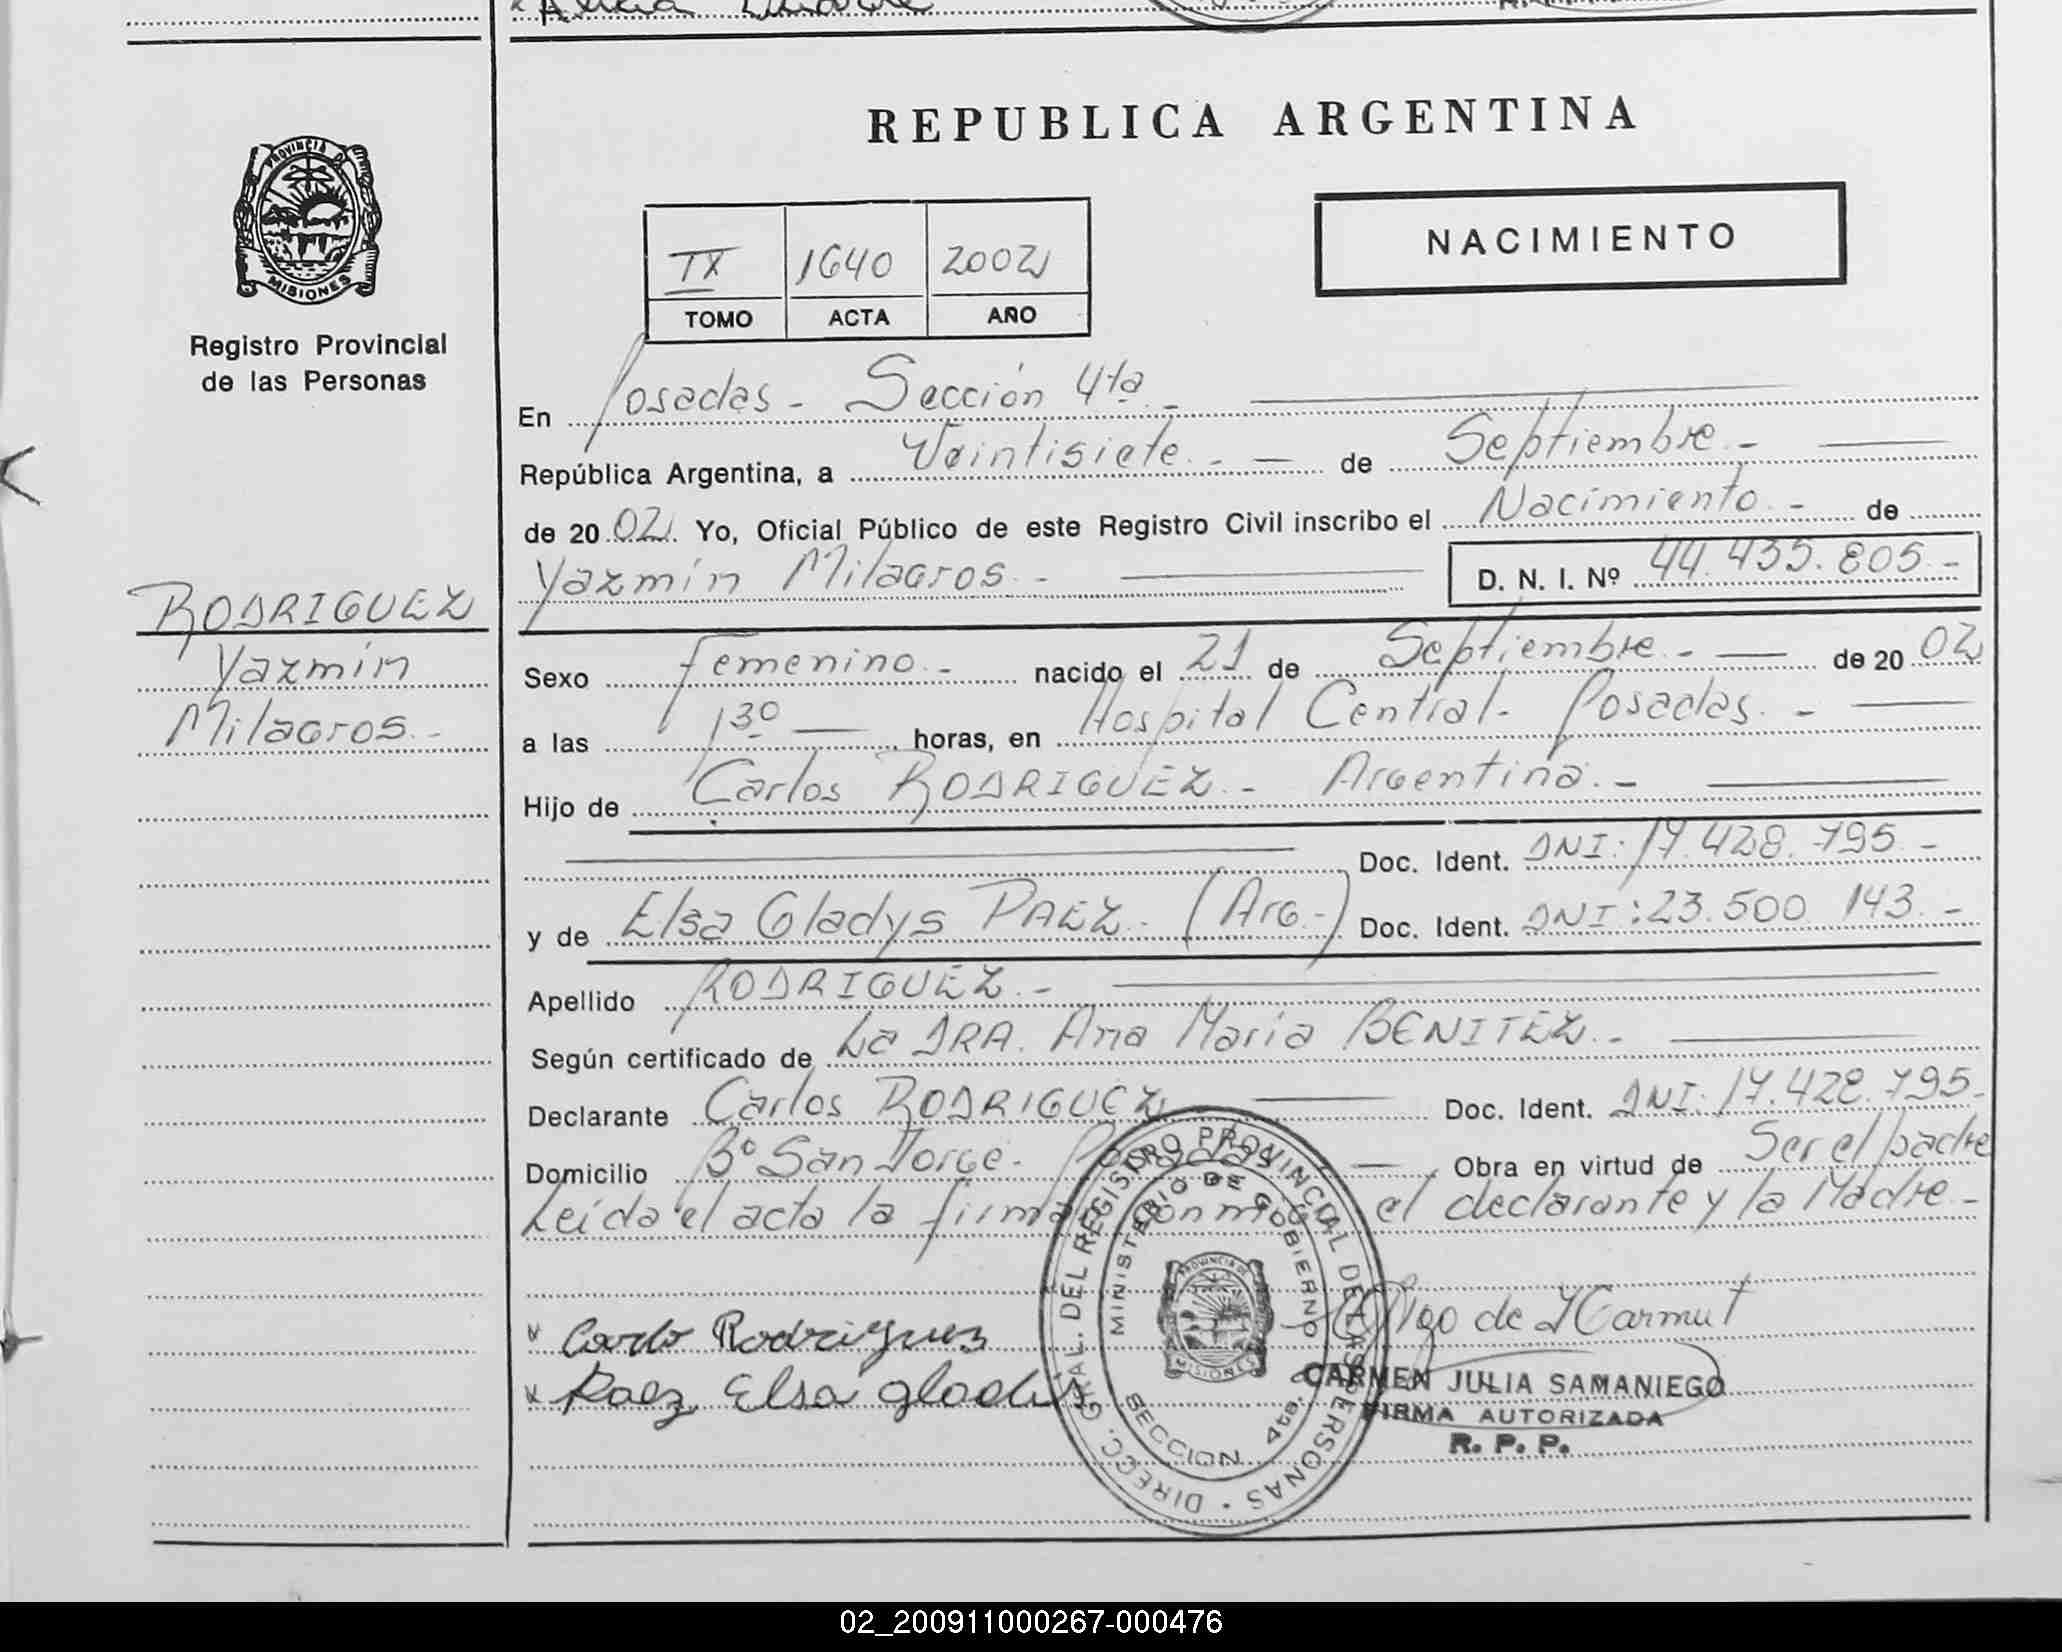 REPUBLICA ARGENTINA
NACIMIENTO
PROVINCIA DE
MISIONES
Registro Provincial
de las Personas
IX 1640 2002
TOMO ACTA AÑO
En Posadas - Sección 4ta -
República Argentina, a Veintisiete - de Septiembre -
de 2002. Yo, Oficial Público de este Registro Civil inscribo el Nacimiento - de
Yazmín Milagros - D. N. I. Nº 44.435.805 -
RODRIGUEZ
Yazmín
Milagros -
Sexo femenino - nacido el 21 de Septiembre - de 2002
a las 1 30 horas, en Hospital Central - Posadas -
Hijo de Carlos RODRIGUEZ - Argentina -
Doc. Ident. DNI: 17.428.795 -
y de Elsa Gladys PAEZ - (Arg.-) Doc. Ident. DNI: 23.500 143 -
Apellido RODRIGUEZ -
Según certificado de La DRA. Ana María BENITEZ -
Declarante Carlos RODRIGUEZ Doc. Ident. DNI: 17.428.795 -
Domicilio Bº San Jorge - Posadas - Obra en virtud de Ser el padre
Leída el acta la firman conmigo el declarante y la Madre -
Carlo Rodriguez
Paez Elsa gladis
CARMEN JULIA SAMANIEGO
FIRMA AUTORIZADA
R. P. P.
DIRECC. GRAL. DEL REGISTRO PROVINCIAL DE LAS PERSONAS
MINISTERIO DE GOBIERNO
PROVINCIA DE
MISIONES
SECCION 4ta.
02_200911000267-000476